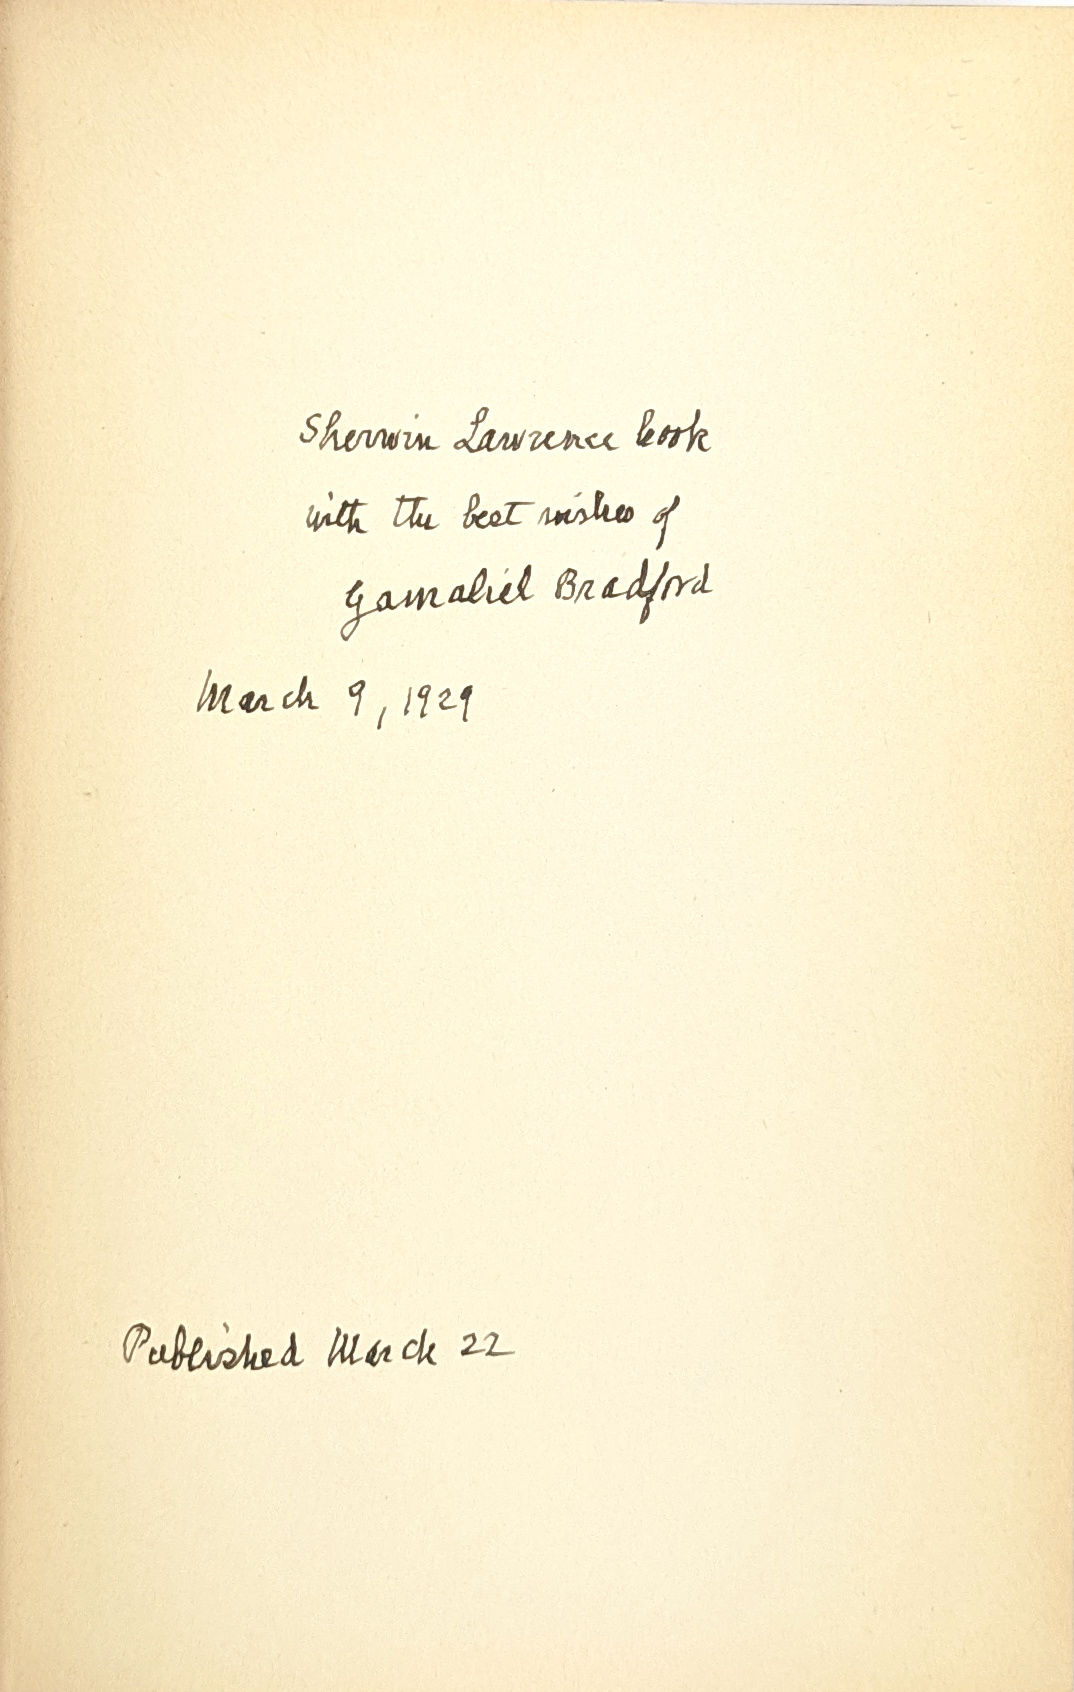 Sherwin Lawrence Cook
with the best wishes of
Gamaliel Bradford
March 9, 1929
Published March 22